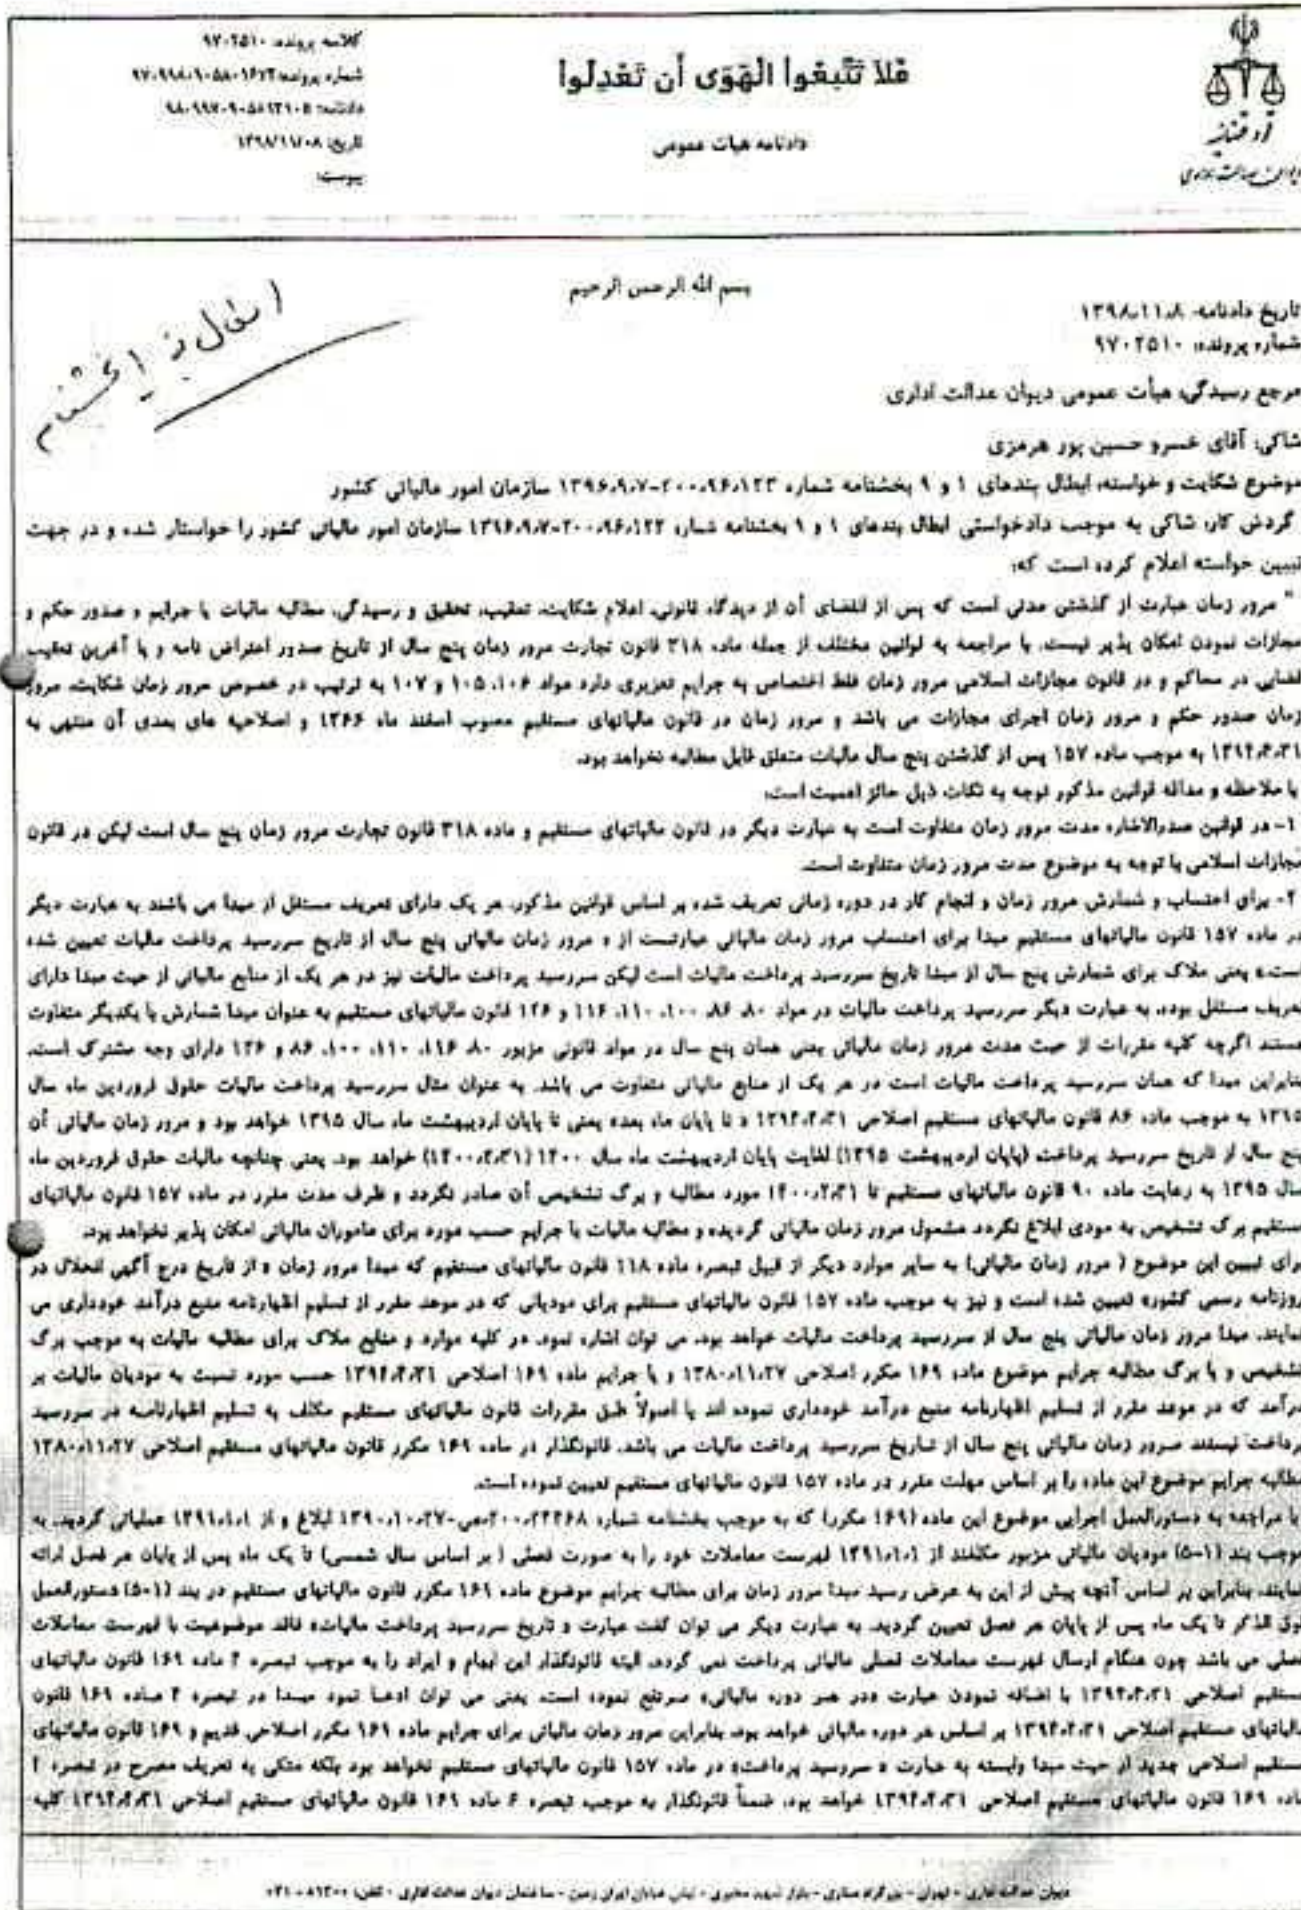 کلاسه پرونده: ۹۷۰۲۵۱۰
شماره پرونده: ۹۷۰۹۹۸۰۹۰۵۸۰۱۶۷۳
دادنامه: ۹۸۰۹۹۷۰۹۰۵۸۱۳۱۰۵
تاریخ: ۱۳۹۸/۱۱/۰۸
پیوست:
فَلا تَتَّبِعُوا الْهَوَى أَن تَعْدِلُوا
دادنامه هیأت عمومی
قوه قضائیه
دیوان عدالت اداری
ابطال بند ۱ بخشنامه
بسم الله الرحمن الرحیم
تاریخ دادنامه: ۱۳۹۸،۱۱،۸
شماره پرونده: ۹۷۰۲۵۱۰
مرجع رسیدگی: هیأت عمومی دیوان عدالت اداری
شاکی: آقای خسرو حسین پور هرمزی
موضوع شکایت و خواسته: ابطال بندهای ۱ و ۹ بخشنامه شماره ۲۰۰،۹۶،۱۲۳-۱۳۹۶،۹،۷ سازمان امور مالیاتی کشور
گردش کار: شاکی به موجب دادخواستی ابطال بندهای ۱ و ۹ بخشنامه شماره ۲۰۰،۹۶،۱۲۳-۱۳۹۶،۹،۷ سازمان امور مالیاتی کشور را خواستار شده و در جهت
تبیین خواسته اعلام کرده است که:
" مرور زمان عبارت از گذشتن مدتی است که پس از انقضای آن از دیدگاه قانونی، اعلام شکایت، تعقیب، تحقیق و رسیدگی، مطالبه مالیات یا جرایم و صدور حکم و
مجازات نمودن امکان پذیر نیست. با مراجعه به قوانین مختلف از جمله ماده ۳۱۸ قانون تجارت مرور زمان پنج سال از تاریخ صدور اعتراض نامه و یا آخرین تعقیب
قضایی در محاکم و در قانون مجازات اسلامی مرور زمان فقط اختصاص به جرایم تعزیری دارد مواد ۱۰۶، ۱۰۵ و ۱۰۷ به ترتیب در خصوص مرور زمان شکایت، مرور
زمان صدور حکم و مرور زمان اجرای مجازات می باشد و مرور زمان در قانون مالیاتهای مستقیم مصوب اسفند ماه ۱۳۶۶ و اصلاحیه های بعدی آن منتهی به
۱۳۹۴،۴،۳۱ به موجب ماده ۱۵۷ پس از گذشتن پنج سال مالیات متعلق قابل مطالبه نخواهد بود.
با ملاحظه و مداقه قوانین مذکور توجه به نکات ذیل حائز اهمیت است:
۱- در قوانین صدرالاشاره مدت مرور زمان متفاوت است به عبارت دیگر در قانون مالیاتهای مستقیم و ماده ۳۱۸ قانون تجارت مرور زمان پنج سال است لیکن در قانون
مجازات اسلامی با توجه به موضوع مدت مرور زمان متفاوت است.
۲- برای احتساب و شمارش مرور زمان و انجام کار در دوره زمانی تعریف شده بر اساس قوانین مذکور، هر یک دارای تعریف مستقل از مبدا می باشند به عبارت دیگر
در ماده ۱۵۷ قانون مالیاتهای مستقیم مبدا برای احتساب مرور زمان مالیاتی عبارتست از « مرور زمان مالیاتی پنج سال از تاریخ سررسید پرداخت مالیات تعیین شده
است» یعنی ملاک برای شمارش پنج سال از مبدا تاریخ سررسید پرداخت مالیات است لیکن سررسید پرداخت مالیات نیز در هر یک از منابع مالیاتی از حیث مبدا دارای
تعریف مستقل بوده، به عبارت دیگر سررسید پرداخت مالیات در مواد ۸۰، ۸۶، ۱۰۰، ۱۱۰، ۱۱۶ و ۱۲۶ قانون مالیاتهای مستقیم به عنوان مبدا شمارش با یکدیگر متفاوت
هستند اگرچه کلیه مقررات از حیث مدت مرور زمان مالیاتی یعنی همان پنج سال در مواد قانونی مزبور ۸۰، ۱۱۶، ۱۱۰، ۱۰۰، ۸۶ و ۱۲۶ دارای وجه مشترک است.
بنابراین مبدا که همان سررسید پرداخت مالیات است در هر یک از منابع مالیاتی متفاوت می باشد. به عنوان مثال سررسید پرداخت مالیات حقوق فروردین ماه سال
۱۳۹۵ به موجب ماده ۸۶ قانون مالیاتهای مستقیم اصلاحی ۱۳۹۴،۴،۳۱ « تا پایان ماه بعد» یعنی تا پایان اردیبهشت ماه سال ۱۳۹۵ خواهد بود و مرور زمان مالیاتی آن
پنج سال از تاریخ سررسید پرداخت، (پایان اردیبهشت ۱۳۹۵) لغایت پایان اردیبهشت ماه سال ۱۴۰۰ (۱۴۰۰،۲،۳۱) خواهد بود. یعنی چنانچه مالیات حقوق فروردین ماه
سال ۱۳۹۵ به رعایت ماده ۹۰ قانون مالیاتهای مستقیم تا ۱۴۰۰،۲،۳۱ مورد مطالبه و برگ تشخیص آن صادر نگردد و ظرف مدت مقرر در ماده ۱۵۷ قانون مالیاتهای
مستقیم برگ تشخیص به مودی ابلاغ نگردد مشمول مرور زمان مالیاتی گردیده و مطالبه مالیات یا جرایم حسب مورد برای ماموران مالیاتی امکان پذیر نخواهد بود.
برای تبیین این موضوع ( مرور زمان مالیاتی) به سایر موارد دیگر از قبیل تبصره ماده ۱۱۸ قانون مالیاتهای مستقیم که مبدا مرور زمان « از تاریخ درج آگهی انحلال در
روزنامه رسمی کشور» تعیین شده است و نیز به موجب ماده ۱۵۷ قانون مالیاتهای مستقیم برای مودیانی که در موعد مقرر از تسلیم اظهارنامه منبع درآمد خودداری می
نمایند، مبدا مرور زمان مالیاتی پنج سال از سررسید پرداخت مالیات خواهد بود، می توان اشاره نمود. در کلیه موارد و منابع ملاک برای مطالبه مالیات به موجب برگ
تشخیص و یا برگ مطالبه جرایم موضوع ماده ۱۶۹ مکرر اصلاحی ۱۳۸۰،۱۱،۲۷ و یا جرایم ماده ۱۶۹ اصلاحی ۱۳۹۴،۴،۳۱ حسب مورد نسبت به مودیان مالیات بر
درآمد که در موعد مقرر از تسلیم اظهارنامه منبع درآمد خودداری نموده اند یا اصولاً طبق مقررات قانون مالیاتهای مستقیم مکلف به تسلیم اظهارنامه در سررسید
پرداخت نیستند مرور زمان مالیاتی پنج سال از تاریخ سررسید پرداخت مالیات می باشد. قانونگذار در ماده ۱۶۹ مکرر قانون مالیاتهای مستقیم اصلاحی ۱۳۸۰،۱۱،۲۷
مطالبه جرایم موضوع این ماده را بر اساس مهلت مقرر در ماده ۱۵۷ قانون مالیاتهای مستقیم تعیین نموده است.
با مراجعه به دستورالعمل اجرایی موضوع این ماده (۱۶۹ مکرر) که به موجب بخشنامه شماره ۲۰۰،۲۴۴۶۸،ص-۱۳۹۰،۱۰،۲۷ ابلاغ و از ۱۳۹۱،۱،۱ عملیاتی گردید، به
موجب بند (۱-۵) مودیان مالیاتی مزبور مکلفند از ۱۳۹۱،۱،۱ فهرست معاملات خود را به صورت فصلی ( بر اساس سال شمسی) تا یک ماه پس از پایان هر فصل ارائه
نمایند، بنابراین بر اساس آنچه پیش از این به عرض رسید مبدا مرور زمان برای مطالبه جرایم موضوع ماده ۱۶۹ مکرر قانون مالیاتهای مستقیم در بند (۱-۵) دستورالعمل
فوق الذکر تا یک ماه پس از پایان هر فصل تعیین گردید. به عبارت دیگر می توان گفت عبارت « تاریخ سررسید پرداخت مالیات» فاقد موضوعیت با فهرست معاملات
فصلی می باشد چون هنگام ارسال فهرست معاملات فصلی مالیاتی پرداخت نمی گردد. البته قانونگذار این ابهام و ایراد را به موجب تبصره ۲ ماده ۱۶۹ قانون مالیاتهای
مستقیم اصلاحی ۱۳۹۴،۴،۳۱ با اضافه نمودن عبارت «در هر دوره مالیاتی» مرتفع نموده است. یعنی می توان ادعا نمود مبدا در تبصره ۲ ماده ۱۶۹ قانون
مالیاتهای مستقیم اصلاحی ۱۳۹۴،۴،۳۱ بر اساس هر دوره مالیاتی خواهد بود. بنابراین مرور زمان مالیاتی برای جرایم ماده ۱۶۹ مکرر اصلاحی قدیم و ۱۶۹ قانون مالیاتهای
مستقیم اصلاحی جدید از حیث مبدا وابسته به عبارت « سررسید پرداخت» در ماده ۱۵۷ قانون مالیاتهای مستقیم نخواهد بود بلکه متکی به تعریف مصرح در تبصره ۲
ماده ۱۶۹ قانون مالیاتهای مستقیم اصلاحی ۱۳۹۴،۴،۳۱ خواهد بود. ضمناً قانونگذار به موجب تبصره ۶ ماده ۱۶۹ قانون مالیاتهای مستقیم اصلاحی ۱۳۹۴،۴،۳۱ کلیه
دیوان عدالت اداری - تهران - بزرگراه ستاری - بلوار شهید مخبری - نبش خیابان ایران زمین - ساختمان دیوان عدالت اداری - تلفن: